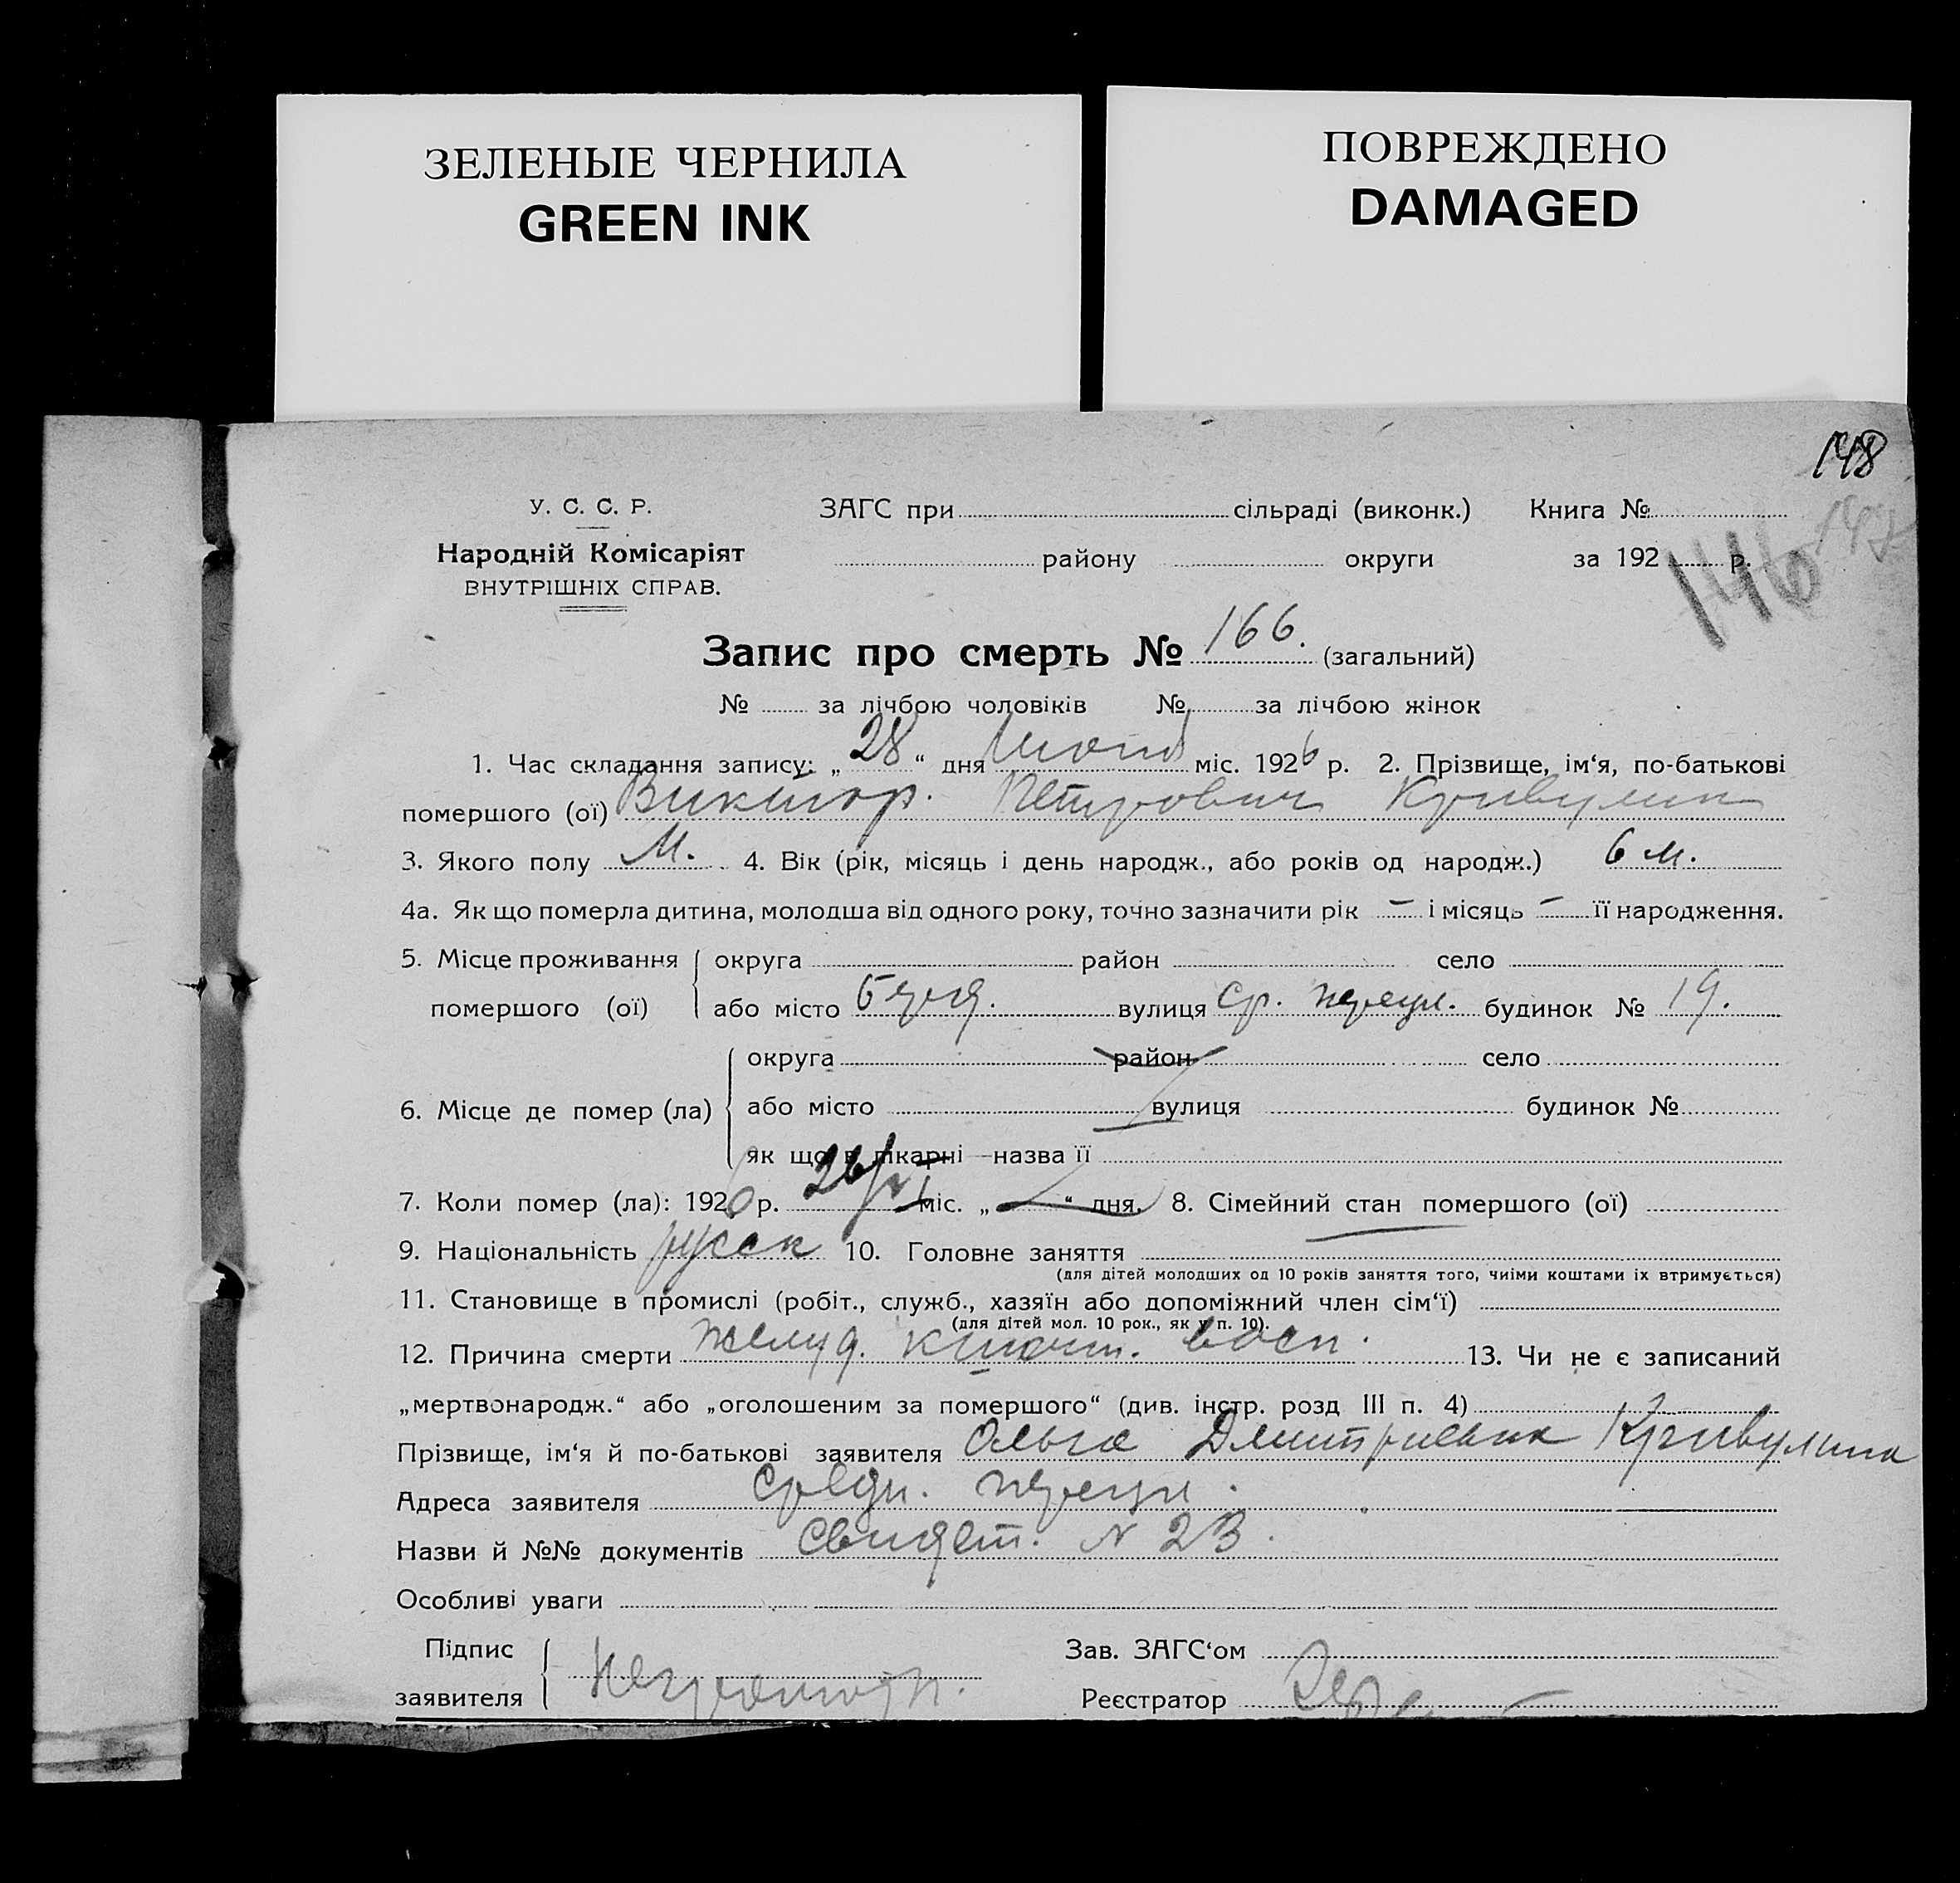 ЗЕЛЕНЫЕ ЧЕРНИЛА
GREEN INK
ПОВРЕЖДЕНО
DAMAGED
148
У. С. С. Р. ЗАГС при сільраді (виконк.) Книга №
147
Народній Комісаріят району округи за 192 р.
146
ВНУТРІШНІХ СПРАВ.
Запис про смерть № 166. (загальний)
№ за лічбою чоловіків № за лічбою жінок
1. Час складання запису: „28“ дня міс. 1926 р. 2. Прізвище, ім‘я, по-батькові
помершого (ої) Виктор. Петрович Кривулин
3. Якого полу М. 4. Вік (рік, місяць і день народж., або років од народж.) 6 м.
4а. Як що померла дитина, молодша від одного року, точно зазначити рік – і місяць – її народження.
5. Місце проживання округа район село
помершого (ої) або місто вулиця Ср. будинок № 19.
округа район село
6. Місце де помер (ла) або місто вулиця будинок №
як що в лікарні назва її
7. Коли помер (ла): 1926 р. 26/VI міс. „ “ дня. 8. Сімейний стан помершого (ої)
9. Національність русск 10. Головне заняття
(для дітей молодших од 10 років заняття того, чиіми коштами їх втримується)
11. Становище в промислі (робіт., служб., хазяїн або допоміжний член сім‘ї)
(для дітей мол. 10 рок., як у п. 10).
12. Причина смерти желуд. восп. 13. Чи не є записаний
„мертвонародж.“ або „оголошеним за помершого“ (див. інстр. розд III п. 4)
Прізвище, ім‘я й по-батькові заявителя Ольга Дмитриевна Кривулина
Адреса заявителя Средн.
Назви й №№ документів Свидет. N 23.
Особливі уваги
Підпис Зав. ЗАГС‘ом
заявителя Неграмотн. Реєстратор